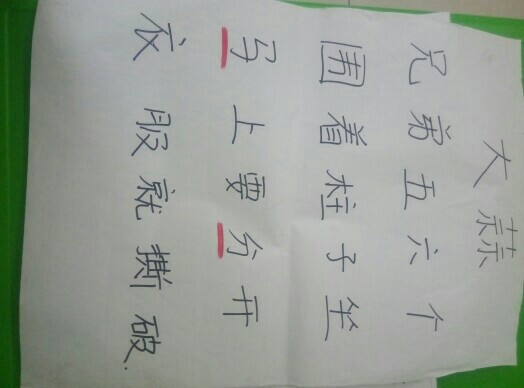 大蒜
兄弟五六个
围着柱子坐
马上要分开
衣服就撕破.